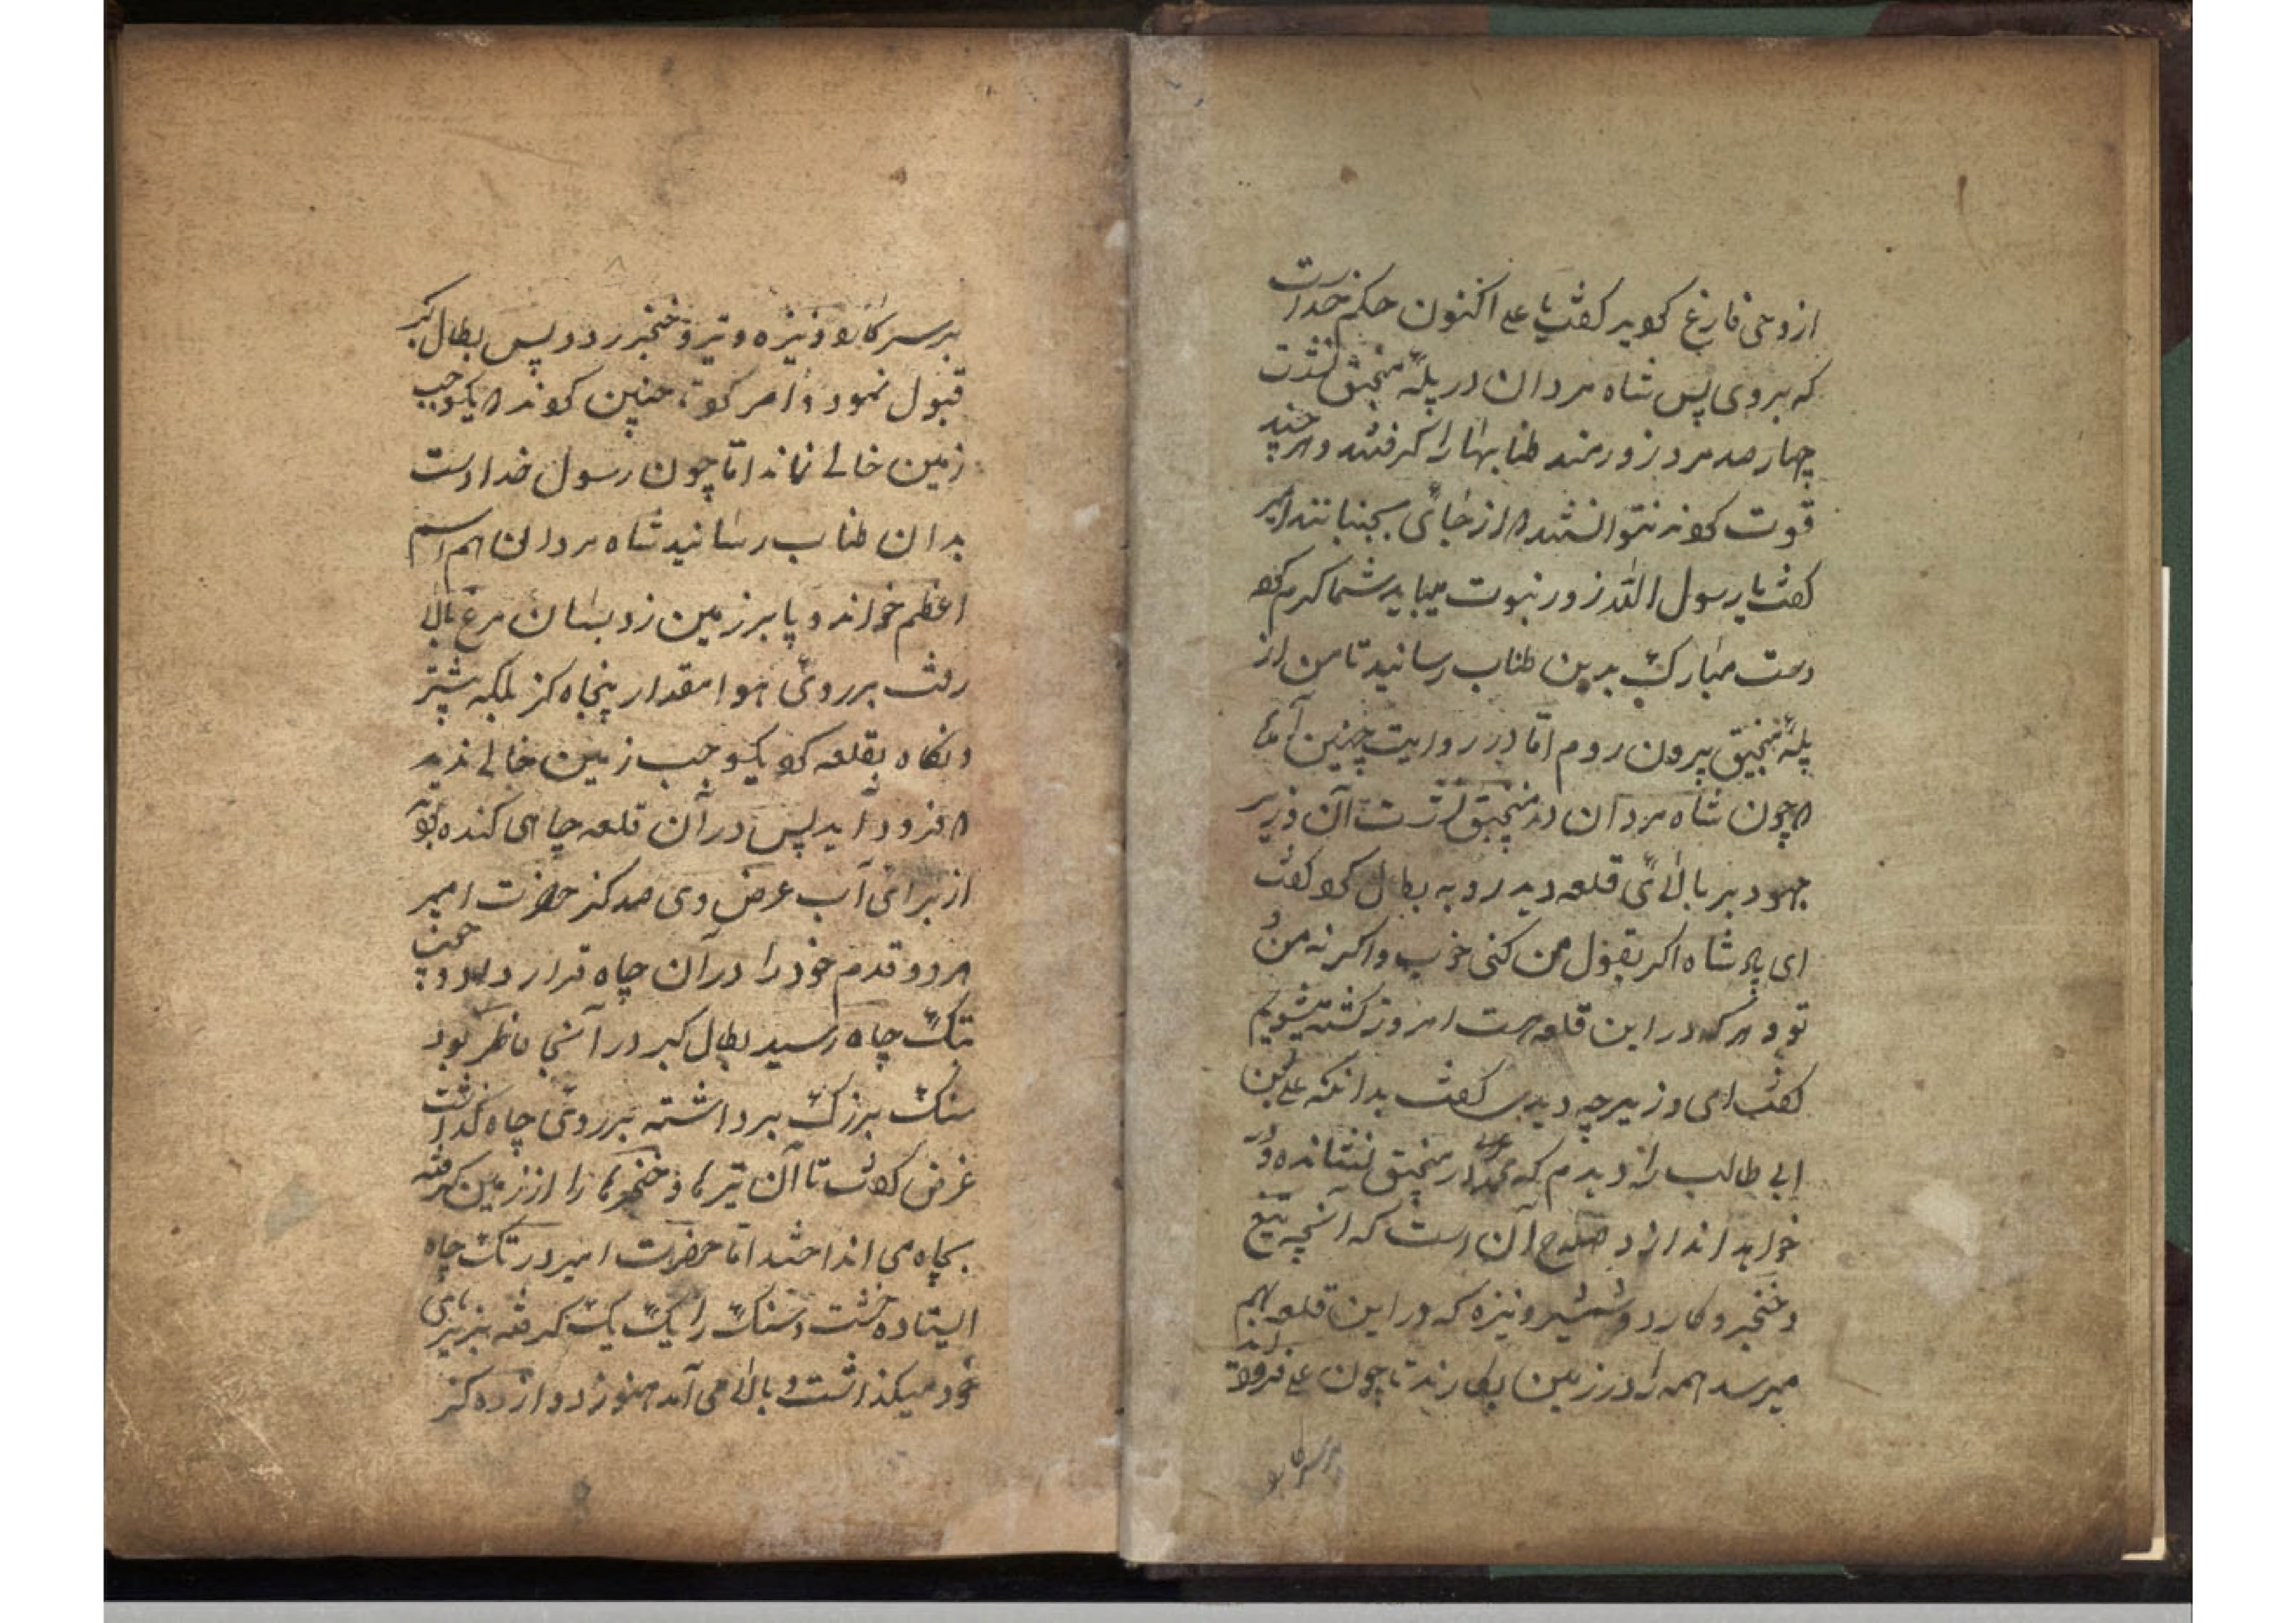 از وحی فارغ کردید کفت یا علی اکنون حکم خداست
که بروی پس شاه مردان در پلهٔ منجنیق نشست
چهار صد مرد زورمند طنابها را کرفتند و هر چند
قوت کردند نتوانستند که از جائی بجنبانند امیر
کفت یا رسول الله زور نبوت میباید شما کرم کرده
دست مبارک بدین طناب رسانید تا من از
پلهٔ منجنیق بیرون روم امّا در روایت چنین آمده
که چون شاه مردان در منجنیق نشست آن وزیر
جهود بر بالائی قلعه دید رو به بطال کرد کفت
ای پادشاه اکر بقول من کنی خوب و اکر نه من و
تو و هر که در این قلعه هست امروز کشته میشویم
کفت ای وزیر چه دیدی کفت بدانکه علی بن
ابی طالب را دیدم که محمد در منجنیق نشانده و
خواهد اندازد صلاح آن است که آنچه تیغ
و خنجر و کارد و شمشیر و نیزه که در این قلعه بهم
میرسد همه را در زمین بکارند تا چون علی فرود آید
بر سر کارد
بر سر کارد و نیزه و تیر و خنجر رود پس بطال کبر
قبول نمود و امر کرد چنین کردند که یکوجب
زمین خالی نماند امّا چون رسول خدا دست
بدان طناب رسانید شاه مردان هم اسم
اعظم خواند و پا بر زمین زد بسان مرغ بالا
رفت بر روی هوا مقدار پنجاه کز بلکه بیشتر
و نکاه بقلعه کرد یکوجب زمین خالی ندید
که فرود آید پس در آن قلعه چاهی کنده بود
از برای آب عرض وی صد کز حضرت امیر
هر دو قدم خود را در آن چاه قرار داد و چون
بتک چاه رسید بطال کبر در آنجا ناظر بود
سنک بزرک برداشته بر روی چاه کذاشت
غرض کفت تا آن تیرها و خنجرها را از زمین کرفته
بچاه می انداختند امّا حضرت امیر در تک چاه
ایستاده خشت و سنک را یک یک کرفته بزیر پای
خود میکذاشت و بالا می آمد هنوز دوازده کز